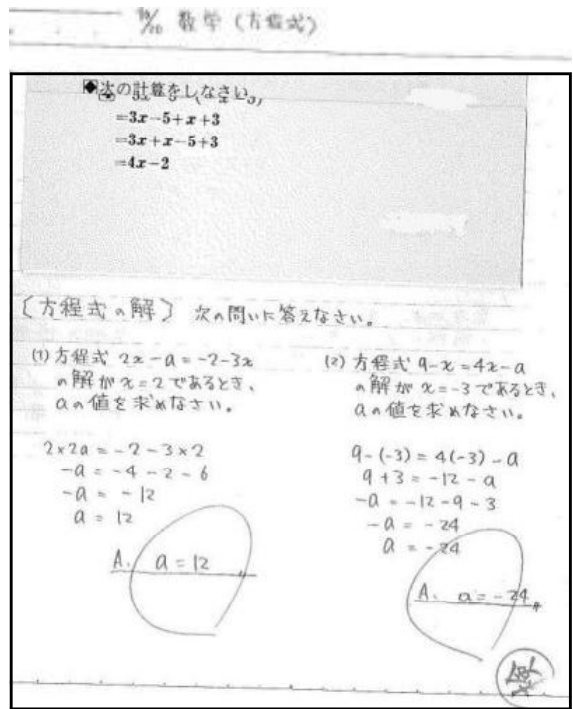 数学(方程式)
◆次の計算をしなさい。
=3x-5+x+3
=3x+x-5+3
=4x-2
〔方程式の解〕 次の問いに答えなさい。
(1) 方程式 2x-a=-2-3x
の解が x=2 であるとき、
aの値を求めなさい。
2×2a=-2-3×2
-a=-4-2-6
-a=-12
a=12
A. a=12
(2) 方程式 9-x=4x-a
の解が x=-3 であるとき、
aの値を求めなさい。
9-(-3)=4(-3)-a
9+3=-12-a
-a=-12-9-3
-a=-24
a=-24
A. a=-24